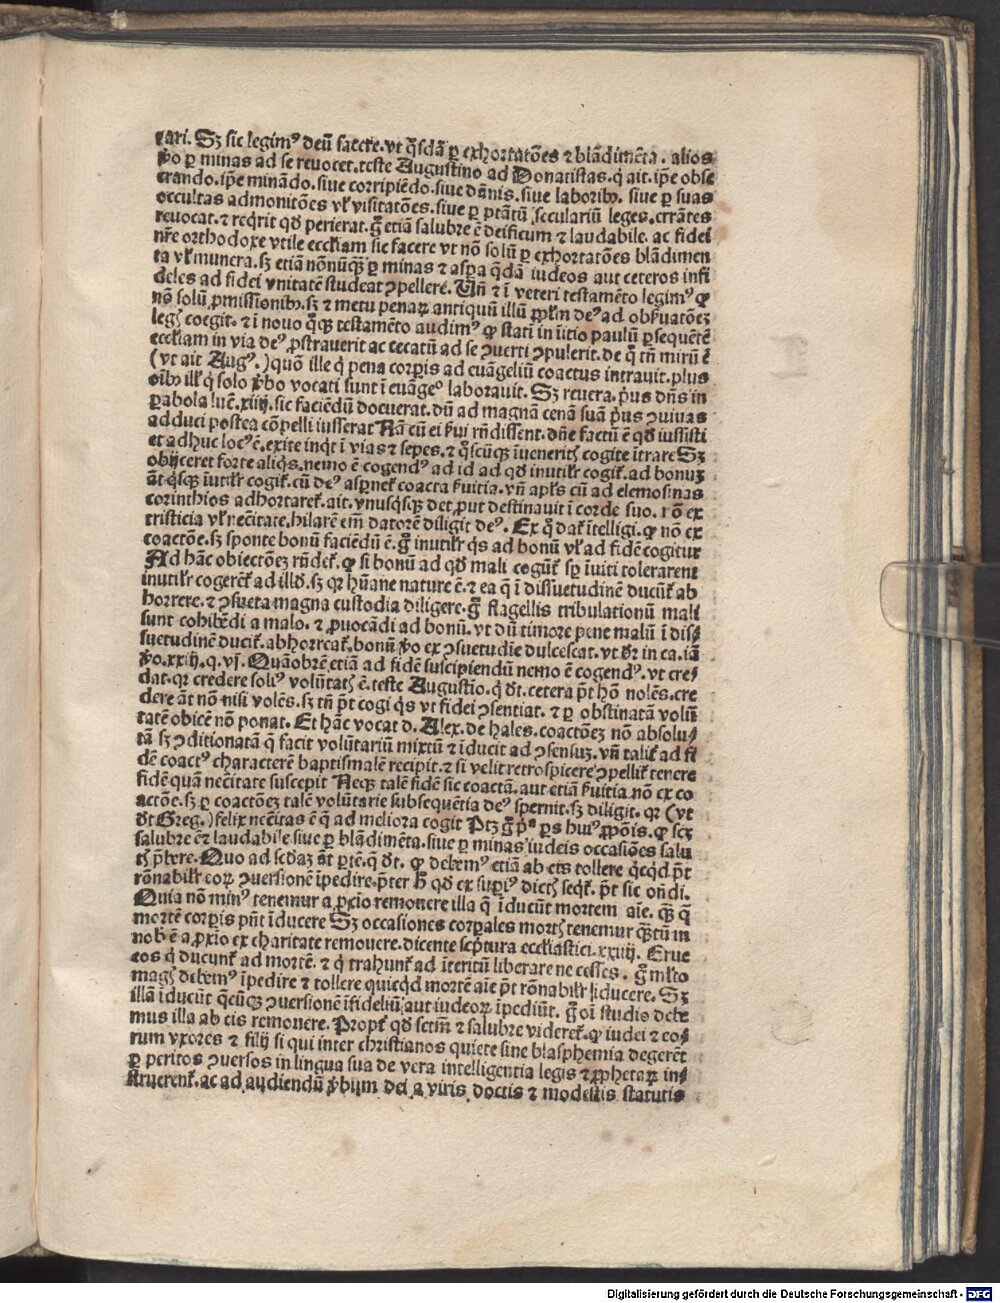 rari. Sʒ sic legimꝰ deū facere. vt q̄sdā ꝑ exhortatōes ⁊ blādimēta. alios
ꝟo ꝑ minas ad se reuocet. teste Augustino ad Donatistas. q̇ ait. ip̄e obse
crando. ip̄e minādo. siue corripiēdo. siue dānis. siue laboribꝰ. siue ꝑ suas
occultas admonitōes vl̓ visitatōes. siue ꝑ ptātū seculariū leges. errātes
reuocat. ⁊ req̇rit qd̓ perierat. g̊ etiā salubre ē deificum ⁊ laudabile. ac fidei
nr̄e orthodoxe vtile eccl̓iam sic facere vt nō solū ꝑ exhortatōes blādimen
ta vl̓ munera. sʒ etiā nōnūqꝫ ꝑ minas ⁊ aspa q̄dā iudeos aut ceteros infi
deles ad fidei vnitatē studeat ꝯpellere. Vn̄ ⁊ ī veteri testamēto legimꝰ ꝙ
nō solū ꝓmissionibꝰ. sʒ ⁊ metu penaꝝ antiquū illū ꝓpl̓m deꝰ ad obẜuatōeʒ
leg̓ coegit. ⁊ ī nouo q̄qꝫ testamēto audimꝰ ꝙ statī in īitio paulū ꝑsequētē
eccl̓iam in via deꝰ ꝓstrauerit ac cecatū ad se ꝯuerti ꝯpulerit. de q̊ tn̄ mirū ē
(vt ait Augꝰ.) quō ille q̇ pena corꝑis ad euāgeliū coactus intrauit. plus
oībꝰ ill̓ q̇ solo ꝟbo vocati sunt ī euāgeº laborauit. Sʒ reuera. pꝰus dn̄s in
ꝑabola luc̄. xiiij. sic faciēdū docuerat. dū ad magnā cenā suā pꝰus ꝯuiuas
adduci postea cōpelli iusserat Nā cū ei ẜui rn̄dissent. dn̄e factū ē qd̓ iussisti
et adhuc locꝰ ē. exite inqt ī vias ⁊ sepes. ⁊ q̊scūqꝫ īuenerit̓ cogite ītrare Sʒ
obijceret forte aliq̇s. nemo ē cogendꝰ ad id ad qd̓ inutilr̓ cogit̓. ad bonuʒ
āt q̇sqꝫ īutilr̓ cogit̓. cū deꝰ aspnet̓ coacta ẜuitia. vn̄ apl̓s cū ad elemosinas
corinthios adhortaret̓. ait. vnusq̇sqꝫ det ꝓut destinauit ī corde suo. nō ex
tristicia vl̓ necītate. hilarē em̄ datorē diligit deꝰ. Ex q̊ dat̓ ītelligi. ꝙ nō ex
coactōe. sʒ sponte bonū faciēdū ē. g̊ inutilr̓ q̇s ad bonū vl̓ ad fidē cogitur
Ad hāc obiectōeʒ rn̄det̓. ꝙ si bonū ad qd̓ mali cogūt̓ sp̄ īuiti tolerarent
inutilr̓ cogerēt̓ ad illd̓. sʒ qr hūane nature ē. ⁊ ea q̄ ī dissuetudinē ducūt̓ ab
horrere. ⁊ ꝯsueta magna custodia diligere. g̊ flagellis tribulationū mali
sunt cohibēdi a malo. ⁊ ꝓuocādi ad bonū. vt dū timore pene malū ī dis⸗
suetudinē ducit̓. abhorreat̓. bonū ꝟo ex ꝯsuetudīe dulcescat. vt dr̄ in ca. iā
ꝟo. xxiij. q. vj. Quāobrē etiā ad fidē suscipiendū nemo ē cogendꝰ. vt cre⸗
dat. qr credere soliꝰ volūtat̓ ē. teste Augustīo. q̇ dt̄. cetera pt̄ hō nolēs. cre
dere āt nō nisi volēs. sʒ tn̄ pt̄ cogi q̇s vt fidei ꝯsentiat. ⁊ ꝑ obstinatā volū
tatē obicē nō ponat. Et hāc vocat d. Alex. de hales. coactōeʒ nō absolu⸗
tā sʒ ꝯditionatā q̄ facit volūtariū mixtū ⁊ īducit ad ꝯsensuʒ. vn̄ talit̓ ad fi
dē coactꝰ characterē baptismalē recipit. ⁊ si velit retrospicere ꝯpellit̓ tenere
fidē quā necītate suscepit Neqꝫ talē fidē sic coactā. aut etiā ẜuitia nō ex co
actōe. sʒ ꝑ coactōeʒ talē voluntarie subsequētia deꝰ spernit. sʒ diligit. qr (vt
dt̄ Greg.) felix necītas ē q̄ ad meliora cogit Ptʒ g̊ pᵃ ꝑs huiꝰ ꝓpōnis. ꝙ scʒ
salubre ē ⁊ laudabile siue ꝑ blādimēta. siue ꝑ minas iudeis occasiōes salu
t̓ p̄bere. Quo ad sc̄daʒ āt ꝑtē. q̄ dt̄. ꝙ debemꝰ etiā ab eis tollere q̇cq̇d pt̄
rōnabilr̓ eoꝝ ꝯuersionē īpedire. p̄ter h̊ qd̓ ex suꝑiꝰ dict̓ seqt̓. pt̄ sic on̄di.
Quia nō minꝰ tenemur a ꝓxīo remouere illa q̄ īducūt mortem aīe. qꝫ q̄
mortē corꝑis pn̄t īducere Sʒ occasiones corꝑales mort̓ tenemur q̄ntū in
nob̓ ē a ꝓxīo ex charitate remouere. dicente scpͥtura eccl̓iastici. xxiiij. Erue
eos q̇ ducunt̓ ad mortē. ⁊ q̇ trahunt̓ ad īteritū liberare ne cesses. g̊ ml̓to
mag̓ debemꝰ īpedire ⁊ tollere quicq̇d mortē aīe pt̄ rōnabilr̓ īducere. Sʒ
illā īducūt q̄cūqꝫ ꝯuersionē īfideliū aut iudeoꝝ īpediūt. g̊ oī studio debe
mus illa ab eis remouere. Propt̓ qd̓ sctm̄ ⁊ salubre videret̓. ꝙ iudei ⁊ eo⸗
rum vxores ⁊ filij si qui inter christianos quiete sine blasphemia degerēt
ꝑ peritos ꝯuersos in lingua sua de vera intelligentia legis ⁊ ꝓphetaꝝ in⸗
struerent̓. ac ad audiendū ꝟbum dei a viris doctis ⁊ modestis statutis
Digitalisierung gefördert durch die Deutsche Forschungsgemeinschaft - DFG